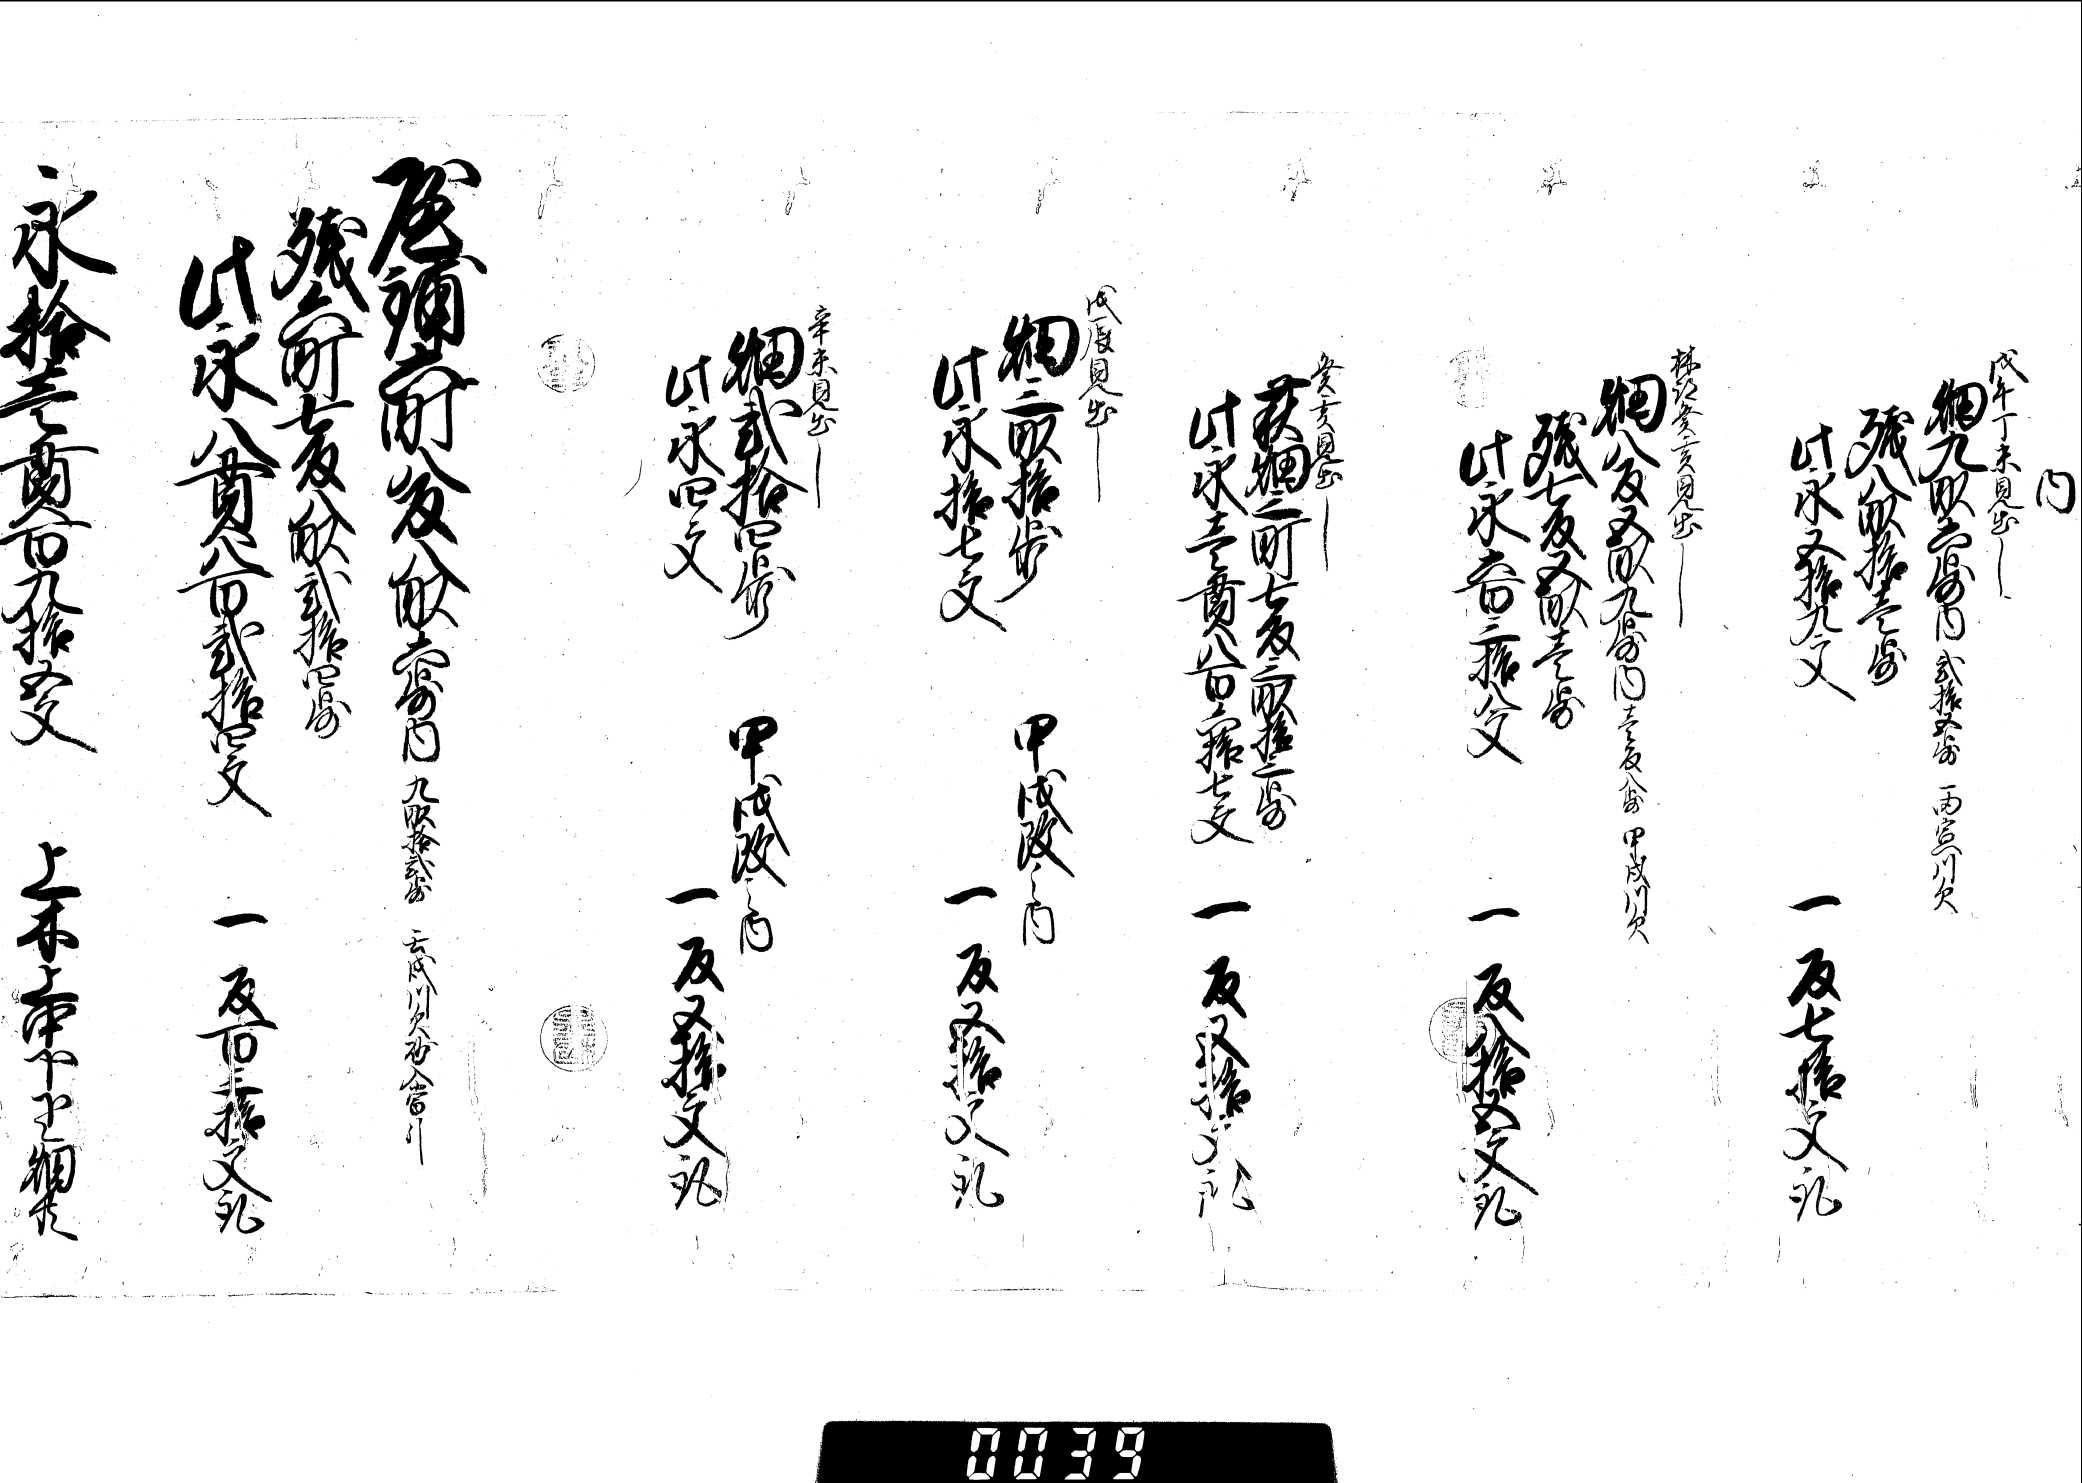 内
戊午丁未見出
畑九畝六歩内 弐拾五歩 丙寅川欠
残八畝拾壱歩
此永五拾九文 一反七拾文取
林跡癸亥見出
畑八反五畝九歩内 壱反八歩 甲戌川欠
残七反五畝壱歩
此永六百三拾八文 一反八拾五文取
癸亥見出
萩畑三町七反三畝拾三歩
此永壱貫八百六拾七文 一反五拾文取
戊辰見出
畑三畝拾歩 甲戌改之内
此永拾七文 一反五拾文取
辛未見出
畑弐拾四歩 甲戌改之内
此永四文 一反五拾文取
屋鋪六町八反八畝六歩内 九畝拾弐歩 壬戌川欠砂入当引
残六町七反八畝弐拾四歩
此永八貫八百弐拾四文 一反百三拾文取
永拾壱貫百九拾五文 上木上中下下々畑共
0039